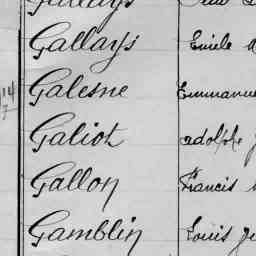 Gallays
Gallays Emile
Galesne Emmanuel
14
7
Galiot adolphe J
Gallon Francis
Gamblin Louis